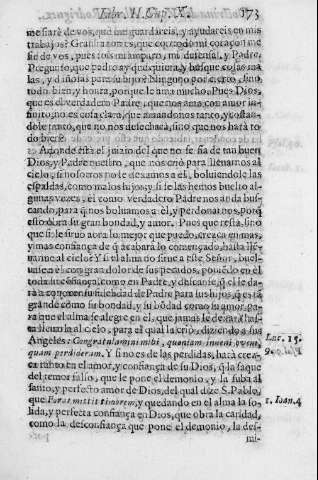 Libr. II. Cap. X. 173
me fiarè de vos, que me guardareis, y ayudareis en mis
trabajos? Gran razon es, que con todo mi coraçon me
fie de vos, pues sois mi amparo, mi defensa, y Padre.
Pregunto, que padre ay que quiera, y busque cosas ma
las, y dañosas para su hijo? Ninguno por cierto, sino
todo bien, y honra, porque le ama mucho. Pues Dios,
que es el verdadero Padre, que nos ama con amor in-
finito, no es cosa claro, que amandonos tanto, y costan-
dole tanto, que no nos desecharà, sino que nos harà to
do bien?
Adonde està el juizio del que no se fia de tan buen
Dios, y Padre nuestro, que nos criò para llevarnos al
cielo, si nosotros no le dexamos a èl, bolviendole las
espaldas, como malos hijos, y si se las hemos buelto al-
gunas vezes, èl como verdadero Padre nos anda bus-
cando, para q nos bolvamos a èl, y perdonarnos, porq
esto obra su gran bondad, y amor. Pues que resta, sino
que si se sirviò acra lo mejor que puedo, crezca en mas,
y mas confiança de q acabarà lo començado, hasta lle-
varme al cielo? Y si el alma no sirve a este Señor, buel-
vase a èl con gran dolor de sus pecados, poniedo en èl
toda su confiança, como en Padre, y dizcante, q èl le da-
rà
grande como su bondad, y su bõdad como su amor, pa-
ra que el alma se alegre en èl, que jamàs le desampara
ra llevarla al cielo, para el qual la criò, diziendo a sus
Angeles: Congratulamini mihi, quoniam inveni ovem,
quam perdideram. Y si no es de las perdidas, harà crez-
ca tanto en el amor, y confiança de su Dios, q la saque
del temor falso, que le pone el demonio, y la suba al
santo, y perfecto amor de Dios, del qual dize S. Pablo,
que Foras mittit timorem, y quedando en el alma la so-
lida, y perfecta confiança en Dios, que obra la caridad,
como la desconfiança que pone el demonio, la des-
mi-
Luc. 15.
1. Ioan. 4